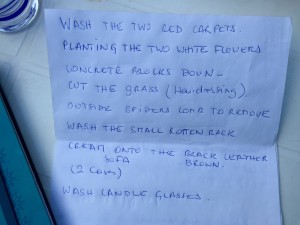 WASH THE TWO RED CARPETS.
PLANTING THE TWO WHITE FLOWERS
CONCRETE BLOCKS DOWN -
CUT THE GRASS (
OUTSIDE SPIDERS TO REMOVE
WASH THE SMALL ROTTEN RACK
CREAM ONTO THE BLACK LEATHER
SOFA BROWN.
(2
WASH CANDLE GLASSES.